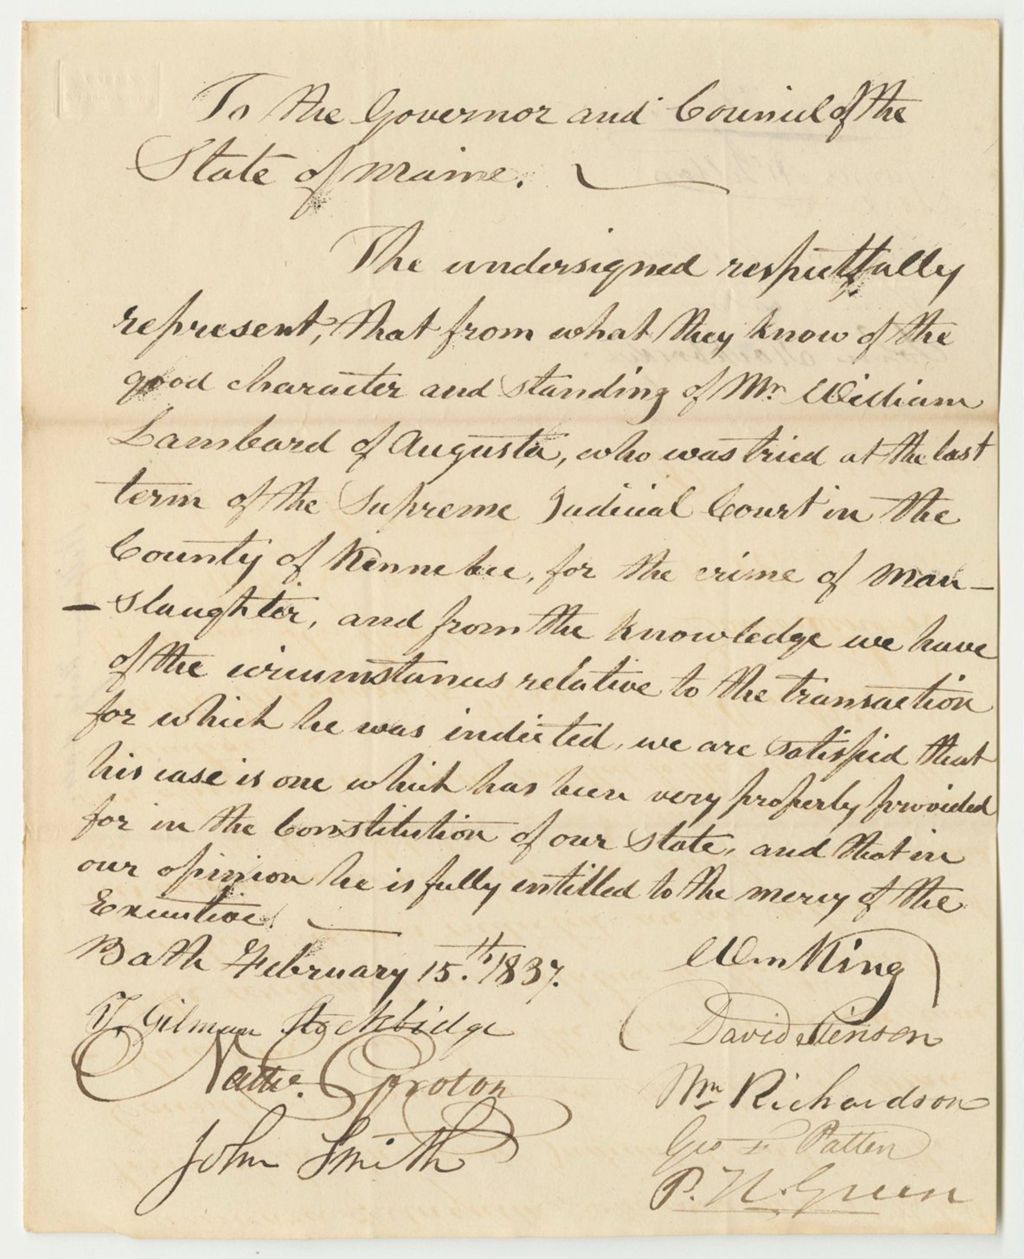 To the Governor and Council of the
State of Maine.
The undersigned respectfully
represent, that from what they know of the
good character and standing of Mr. William
Lambard of Augusta, who was tried at the last
term of the Supreme Judicial Court in the
County of Kennebec, for the crime of Man-
-slaughter, and from the knowledge we have
of the circumstances relative to the transaction
for which he was indicted, we are satisfied that
his case is one which has been very properly provided
for in the Constitution of our State, and that in
our opinion he is fully entitled to the mercy of the
Executive.
Bath February 15.th 1837.
Wm King
T. Gilman Stockbridge
David Stinson
Nathl. Groton
Wm Richardson
John Smith
Geo F Patten
P. H. Green